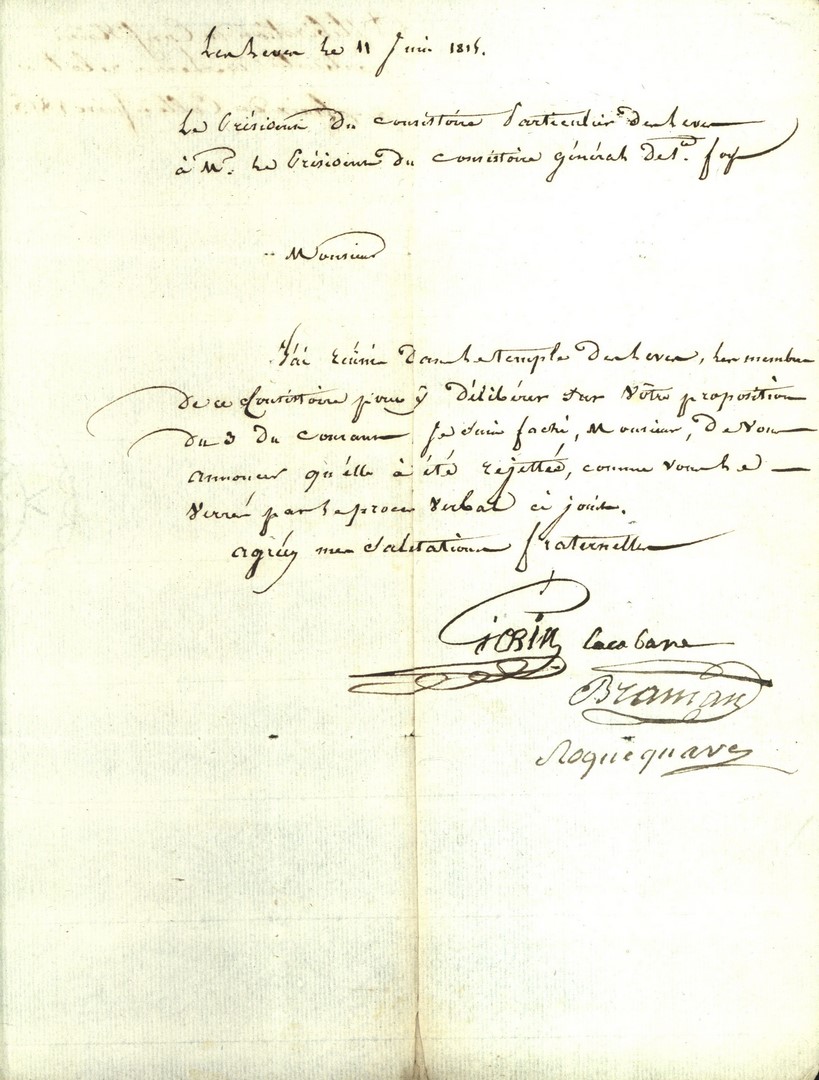 Les Leves le 11 Juin 1815.
Le Présidant du consistoire Particulier des Leves
à Mr. le Présidant du consistoire général de Ste. foy
Monsieur
J'ai réüni dans le temple des Leves, les membres
de ce Consistoire pour y délibérer sur Vôtre proposition
du 3 du courant, Je suis faché, Monsieur, de vous
annoncer qu'élle à été réjettée, comme vous le
verrés par le procès verbal ci joint.
agréez mes salutations fraternelles
Lacabane
Roquequave